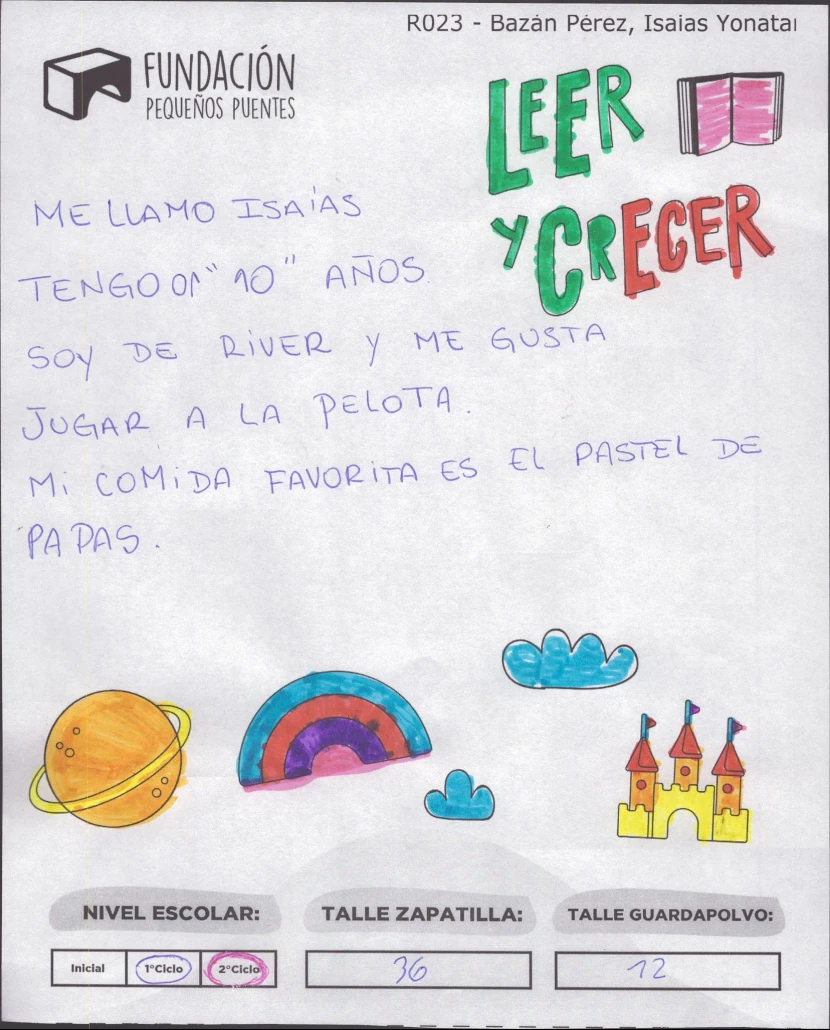 R023 - Bazán Pérez, Isaias Yonatan
FUNDACIÓN
PEQUEÑOS PUENTES
LEER
Y CRECER
ME LLAMO ISAíAS
TENGO "10" AÑOS
SOY DE RIVER Y ME GUSTA
JUGAR A LA PELOTA.
Mi COMiDA FAVORITA ES EL PASTEL DE
PAPAS.
NIVEL ESCOLAR:
Inicial 1°Ciclo 2°Ciclo
TALLE ZAPATILLA:
36
TALLE GUARDAPOLVO:
12